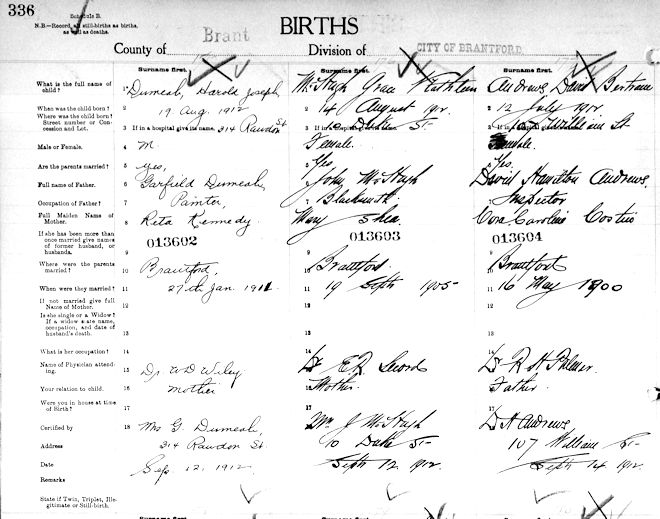 336
Schedule B.
N.B.—Record all still-births as births,
as well as deaths.
BIRTHS
County of Brant
Division of CITY OF BRANTFORD
Surname first. Surname first. Surname first.
What is the full name of child? 1 Dumeah, Harold Joseph McHugh Grace Kathleen Andrews David Bertram
When was the child born? 2 19 Aug. 1912 14 August 1912 12 July 1912
Where was the child born? Street number or Concession and Lot. 3 If in a hospital give its name. 314 Rawdon St 3 If in a hospital give its name. Duke St 3 If in a hospital give its name. William St.
Male or Female. 4 M Female. Female.
Are the parents married? 5 Yes, Yes Yes.
Full Name of Father. 6 Garfield Dumeah, John McHugh David Hamilton Andrews
Occupation of Father? 7 Painter, Blacksmith Inspector
Full Maiden Name of Mother. 8 Reta Kennedy. Mary Shea Cora Caroline
If she has been more than once married give names of former husband, or husbands. 9
013602 013603 013604
Where were the parents married? 10 Brantford, Brantford Brantford
When were they married? 11 27th Jan. 1911 19 Sept 1905 16 May 1900
If not married give full Name of Mother. 12
Is she single or a Widow? If a widow state name, occupation, and date of husband's death. 13
What is her occupation? 14
Name of Physician attending. 15 Dr. W D Wiley Dr E R Secord Dr R H Palmer
Your relation to child. 16 Mother Mother. Father.
Were you in house at time of Birth? 17
Certified by 18 Mrs G. Dumeah, Mrs J McHugh D H Andrews
Address 314 Rawdon St. 10 Duke St 107 William St
Date Sep. 12, 1912. Sept 12 1912. Sept 14 1912.
Remarks
State if Twin, Triplet, Illegitimate or Still-birth.